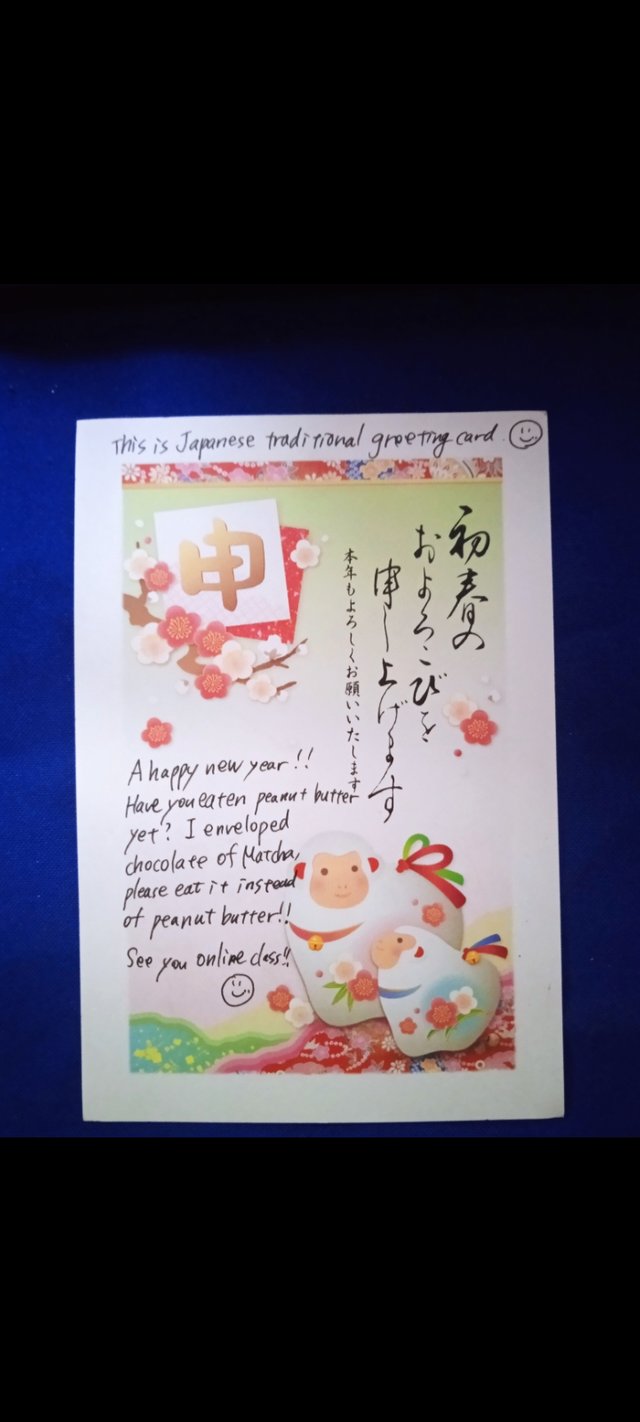 This is Japanese traditional greeting card.
申
初春の
およろこびを
申し上げます
本年もよろしくお願いいたします
A happy new year!!
Have you eaten peanut butter
yet? I enveloped
chocolate of Matcha,
please eat it instead
of peanut butter!!
See you online class!!